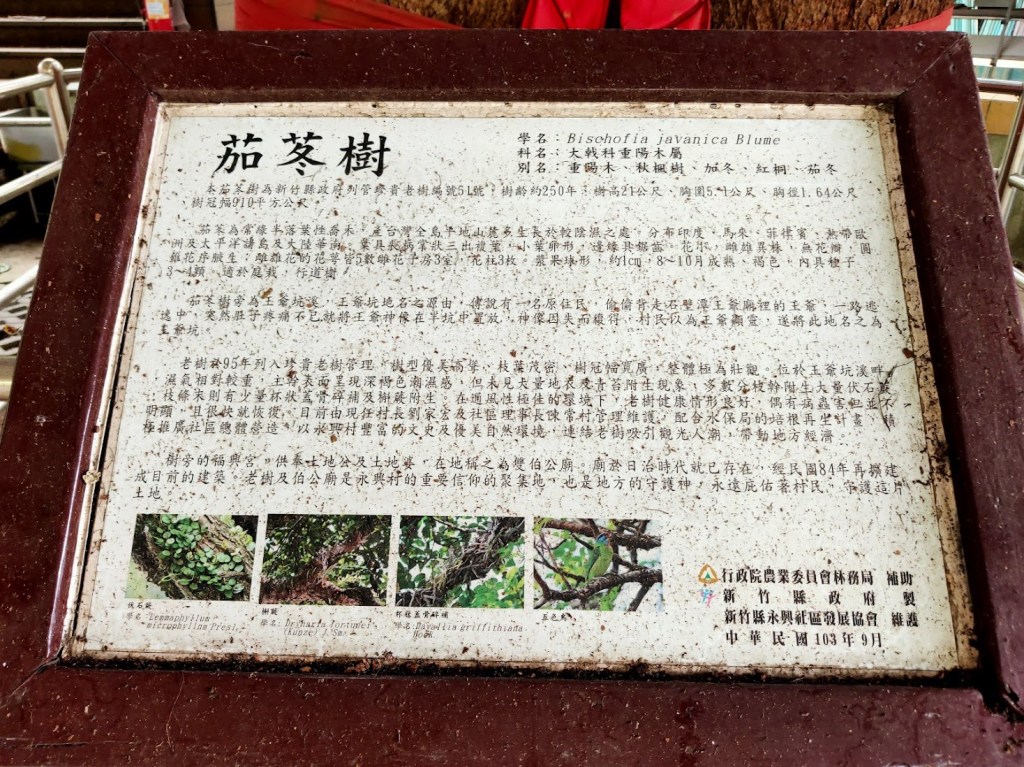 茄苳樹
學名：Bischofia javanica Blume
科名：大戟科重陽木屬
別名：重陽木、秋楓樹、加冬、紅桐、茄冬
本茄苳樹為新竹縣政府列管珍貴老樹編號51號，樹齡約250年，樹高21公尺、胸圍5.1公尺、胸徑1.64公尺
樹冠幅910平方公尺。
茄苳為常綠半落葉性喬木，產台灣全島平地山麓多生長於較陰濕之處，分布印度、馬來、菲律賓、熱帶歐
洲及太平洋諸島及大陸華南。葉具長柄掌狀三出複葉，小葉卵形，邊緣具鋸齒。花小，雌雄異株，無花瓣，圓
錐花序腋生；雌雄花的花萼皆5數雌花子房3室，花柱3枚。漿果球形，約1cm，8～10月成熟，褐色，內具種子
3～4顆，適於庭栽，行道樹。
茄苳樹旁為王爺坑溪，王爺坑地名之源由，傳說有一名原住民，偷偷背走石壁潭王爺廟裡的王爺，一路逃
逃中，突然肚子疼痛不已就將王爺神像在半坑中置放，神像因失而復得，村民以為王爺顯靈，遂將此地名之為
王爺坑。
老樹於95年列入珍貴老樹管理，樹型優美高聳、枝葉茂密、樹冠幅寬廣，整體極為壯觀。位於王爺坑溪畔，
濕氣相對較重，主幹表面呈現深褐色潮濕感，但未見大量地衣及青苔附生現象，多數分枝幹附生大量伏石蕨
；枝條末則有少量杯狀蓋骨碎補及槲蕨附生。在通風性極佳的環境下，老樹健康情形良好，偶有病蟲害但並不
明顯，且很快就恢復。目前由現任村長劉家宝及社區理事長陳常村管理維護，配合水保局的培根再生計畫，積
極推廣社區總體營造，以永興村豐富的文史及優美自然環境，連結老樹吸引觀光人潮，帶動地方經濟。
樹旁的福興宮。供奉土地公及土地婆，在地稱之為雙伯公廟。廟於日治時代就已存在，經民國84年再擴建
成目前的建築。老樹及伯公廟是永興村的重要信仰的聚集地，也是地方的守護神，永遠庇佑著村民，守護這片
土地。
伏石蕨
學名：Lemmaphyllum
microphyllum Presl
槲蕨
學名：Drynaria fortunei
(Kunze) J. Sm.
杯狀蓋骨碎補
學名：Davallia griffithiana
Hook
五色鳥
行政院農業委員會林務局 補助
新竹縣政府 製
新竹縣永興社區發展協會 維護
中華民國103年9月